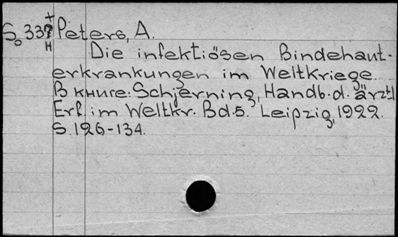 S. 337 Peters, A.
Die infektiösen Bindehaut-
erkrankungen im Weltkriege.
В книге: Schjerning, Handb. d. ärztl.
Erf. im Weltkr. Bd. 5. Leipzig, 1922.
S. 126-134.